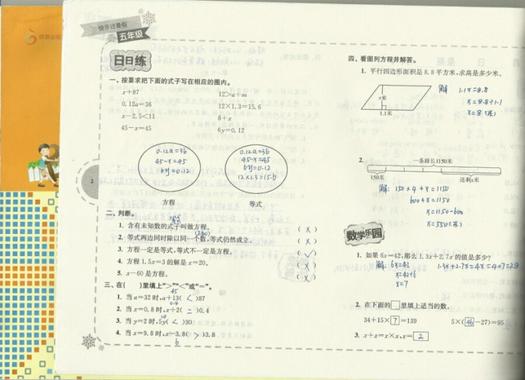 快乐过暑假
五年级
日日练
一、按要求把下面的式子写在相应的圈内。
x+87 12>a÷m
0.12a=36 12×1.3=15.6
x-2.5<11 8+x
45-x=45 6y=0.12
0.12a=36
45-x=45
6y=0.12
0.12a=36
45-x=45
6y=0.12
12×1.3=15.6
方程 等式
2
二、判断。
1. 含有未知数的式子叫做方程。 (×)
2. 等式两边同时除以同一个数,等式仍然成立。 (×)
3. 方程一定是等式,等式不一定是方程。 (√)
4. 方程1.5x=3的解是x=20。 (×)
5. x-60是方程。 (×)
三、在( )里填上">""<"或"="。
1. 当a=32时,a+13(<)87
2. 当x=0.8时,x÷2(=)0.4
3. 当y=2时,5y(<)30
4. 当x=9.8时,x-3.8(>)3.8
四、看图列方程并解答。
1. 平行四边形面积是8.8平方米,求高是多少米。
x米
1.1米
解: 1.1x=8.8
x=8.8÷1.1
2.
一条路长1150米
150米
还剩x米
x=1150-600
x=550
数学乐园
1. 如果6x=42,那么1.3x+2.7x的值是多少?
解: 6x=42
x=7
2. 在下面的□里填上适当的数。
34+15×7=139 5×(46-27)=95
3. x+x=x×x,x=2